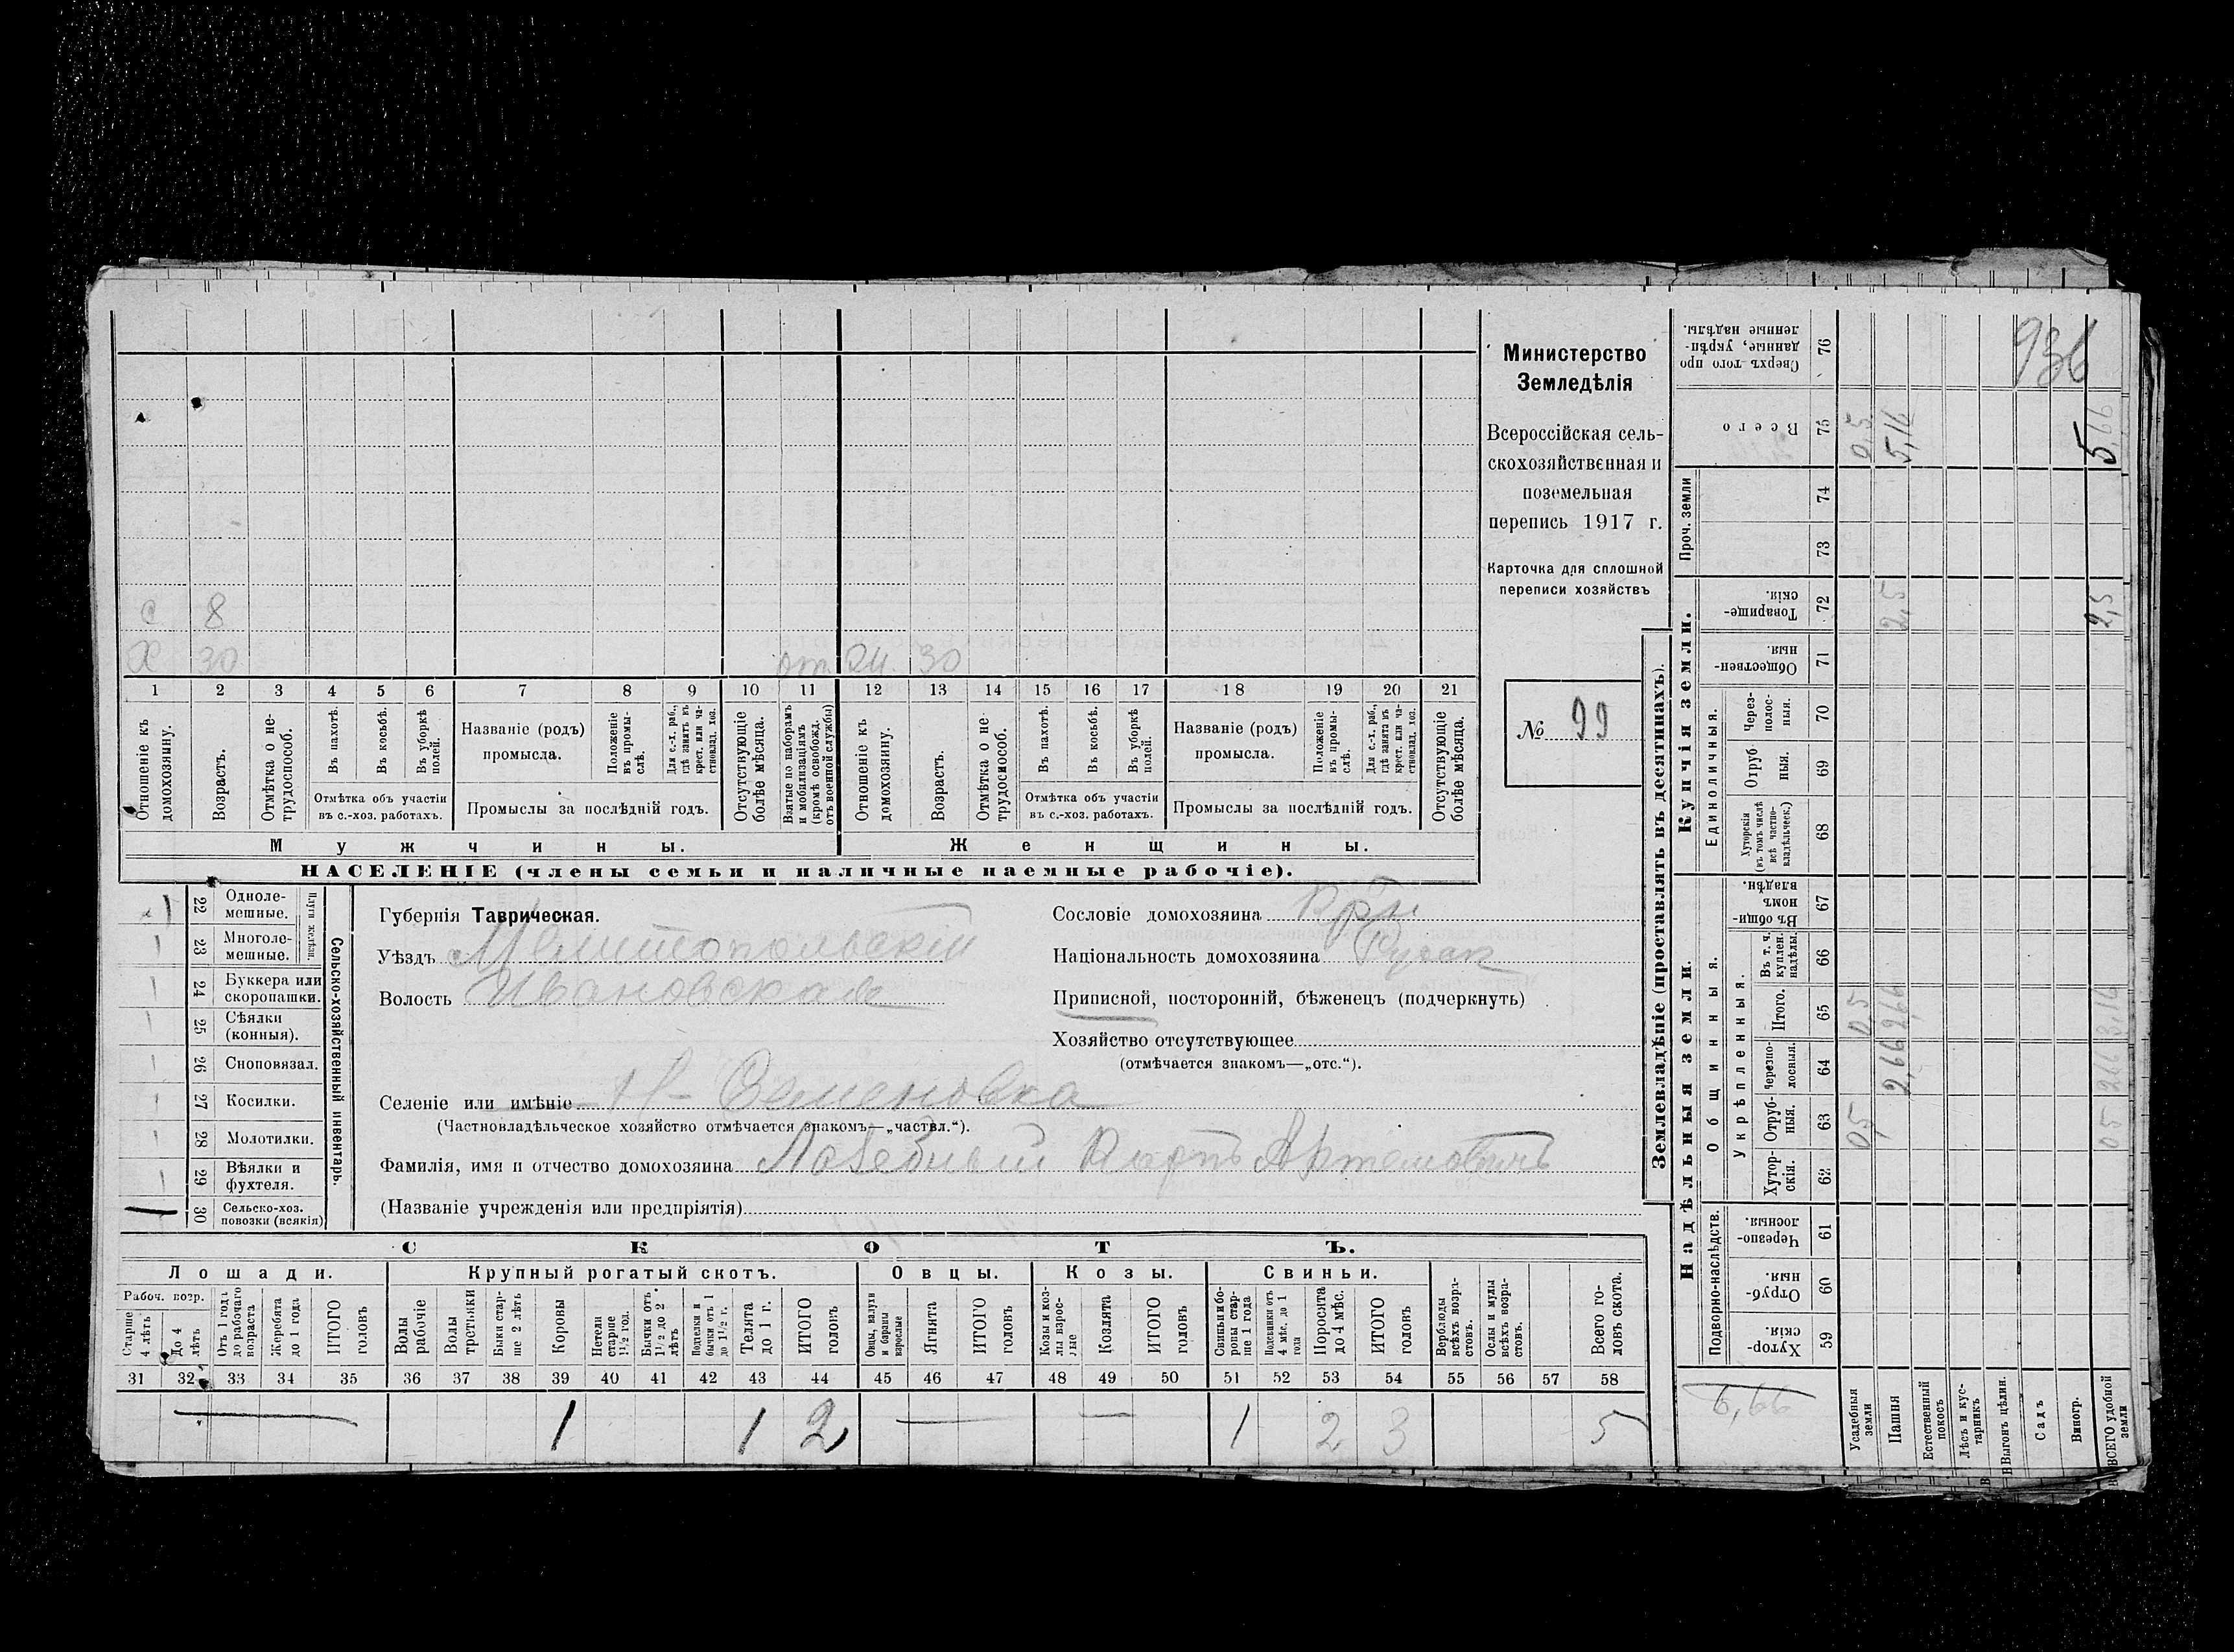 Министерство
Земледѣлія
Всероссійская сель-
скохозяйственная и
поземельная
перепись 1917 г.
Карточка для сплошной
переписи хозяйствъ
№ 99
с 8
Х 30 от. 24. 30
1 2 3 4 5 6 7 8 9 10 11 12 13 14 15 16 17 18 19 20 21
Отношеніе къ домохозяину.
Возрастъ.
Отмѣтка о не-трудоспособ.
Въ пахотѣ.
Въ косьбѣ.
Въ уборкѣ полей.
Отмѣтка объ участіи
въ с.-хоз. работахъ.
Названіе (родъ)
промысла.
Положеніе въ промы-слѣ.
Для с.-х. раб., гдѣ занятъ въ крест. или ча-стновлад. хоз.
Промыслы за послѣдній годъ.
Отсутствующіе болѣе мѣсяца.
Взятые по наборамъ и мобилизаціямъ (кромѣ освобожд. отъ военной службы)
Отношеніе къ домохозяину.
Возрастъ.
Отмѣтка о не трудоспособ.
Въ пахотѣ.
Въ косьбѣ.
Въ уборкѣ полей.
Отмѣтка объ участіи
въ с.-хоз. работахъ.
Названіе (родъ)
промысла.
Положеніе въ промы-слѣ.
Для с.-х. раб., гдѣ занята въ крест. или ча-стновлад. хоз.
Промыслы за послѣдній годъ.
Отсутствующіе болѣе мѣсяца.
Мужчины. Женщины.
НАСЕЛЕНІЕ (члены семьи и наличные наемные рабочіе).
Сельско-хозяйственный инвентарь.
Плуги желѣзн.
22 Одноле-мешные.
23 Многоле-мешные.
24 Буккера или скоропашки.
25 Сѣялки (конныя).
26 Сноповязал.
27 Косилки.
28 Молотилки.
29 Вѣялки и фухтеля.
30 Сельско-хоз. повозки (всякія)
Губернія Таврическая.
Уѣздъ Мелитопольскій
Волость Ивановская
Селеніе или имѣніе Н-Семеновка
(Частновладѣльческое хозяйство отмѣчается знакомъ—„частвл.“).
Фамилія, имя и отчество домохозяина Лобедный Карпъ Артемовичъ
(Названіе учрежденія или предпріятія)
Сословіе домохозяина Кр-н
Національность домохозяина Русак
Приписной, посторонній, бѣженецъ (подчеркнуть)
Хозяйство отсутствующее
(отмѣчается знакомъ—„отс.“).
СКОТЪ.
Лошади. Крупный рогатый скотъ. Овцы. Козы. Свиньи.
Рабоч. возр.
Старше 4 лѣтъ
До 4 лѣтъ
Отъ 1 года до рабочаго возраста
Жеребята до 1 года
ИТОГО головъ
Волы рабочіе
Волы третьяки
Быки стар-ше 2 лѣтъ
Коровы
Нетели старше 1½ год.
Бычки отъ 1½ до 2 лѣтъ
Подтелки и бычки отъ 1 до 1½ г.
Телята до 1 г.
ИТОГО головъ
Овцы, валухи и бараны взрослые
Ягнята
ИТОГО головъ
Козы и коз-лы взрос-лые
Козлята
ИТОГО головъ
Свиньи и бо-ровы стар-ше 1 года
Подсвинки отъ 4 мѣс. до 1 года
Поросята до 4 мѣс.
ИТОГО головъ
Верблюды всѣхъ возра-стовъ.
Ослы и мулы всѣхъ возра-стовъ.
Всего го-ловъ скота.
31 32 33 34 35 36 37 38 39 40 41 42 43 44 45 46 47 48 49 50 51 52 53 54 55 56 57 58
1 1 2 1 2 3 5
Землевладѣніе (проставлять въ десятинахъ).
Надѣльныя земли. Купчія земли.
Подворно-наслѣдств.
Общинныя.
Укрѣпленныя.
Единоличныя.
Проч. земли
59 Хутор-скія.
60 Отруб-ныя.
61 Черезпо-лосныя.
62 Хутор-скія.
63 Отруб-ныя. 05
64 Черезпо-лосныя. 2,66
65 Итого. 0,5 2,66
66 Въ т. ч. куплен. надѣлы.
67 Въ общин-номъ владѣн.
68 Хуторскія (въ томъ числѣ всѣ частно-владѣльческ.)
69 Отруб ныя.
70 Через-полос-ныя.
71 Обществен-ныя.
72 Товарище-скія. 2,5 2,5
73
74
75 Всего 0,5 5,16 5,66
76 Сверхъ того про данные, укрѣп-ленные надѣлы.
936
6,66
Усадебныя земли
Пашня
Естественный покосъ
Лѣсъ и кус-тарникъ
Выгонъ цѣлин.
Садъ
Виногр.
ВСЕГО удобной земли